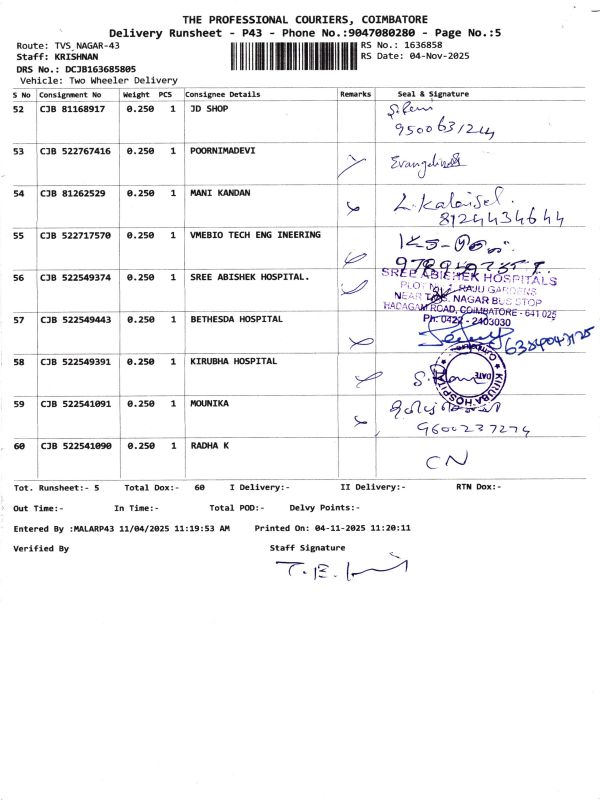 THE PROFESSIONAL COURIERS, COIMBATORE
Delivery Runsheet - P43 - Phone No.:9047080280 - Page No.:5
Route: TVS_NAGAR-43 RS No.: 1636858
Staff: KRISHNAN RS Date: 04-Nov-2025
DRS No.: DCJB163685805
Vehicle: Two Wheeler Delivery
S No Consignment No Weight PCS Consignee Details Remarks Seal & Signature
52 CJB 81168917 0.250 1 JD SHOP
9500631244
53 CJB 522767416 0.250 1 POORNIMADEVI
54 CJB 81262529 0.250 1 MANI KANDAN
8124434644
55 CJB 522717570 0.250 1 VMEBIO TECH ENG INEERING
56 CJB 522549374 0.250 1 SREE ABISHEK HOSPITAL.
SREE ABISHEK HOSPITALS
RAJU GARDENS
NEAR NAGAR BUS STOP
ROAD, COIMBATORE - 641 025
Ph: 0422 - 2403030
57 CJB 522549443 0.250 1 BETHESDA HOSPITAL
58 CJB 522549391 0.250 1 KIRUBHA HOSPITAL
DATE
59 CJB 522541091 0.250 1 MOUNIKA
9600237274
60 CJB 522541090 0.250 1 RADHA K
CN
Tot. Runsheet:- 5 Total Dox:- 60 I Delivery:- II Delivery:- RTN Dox:-
Out Time:- In Time:- Total POD:- Delvy Points:-
Entered By :MALARP43 11/04/2025 11:19:53 AM Printed On: 04-11-2025 11:20:11
Verified By Staff Signature